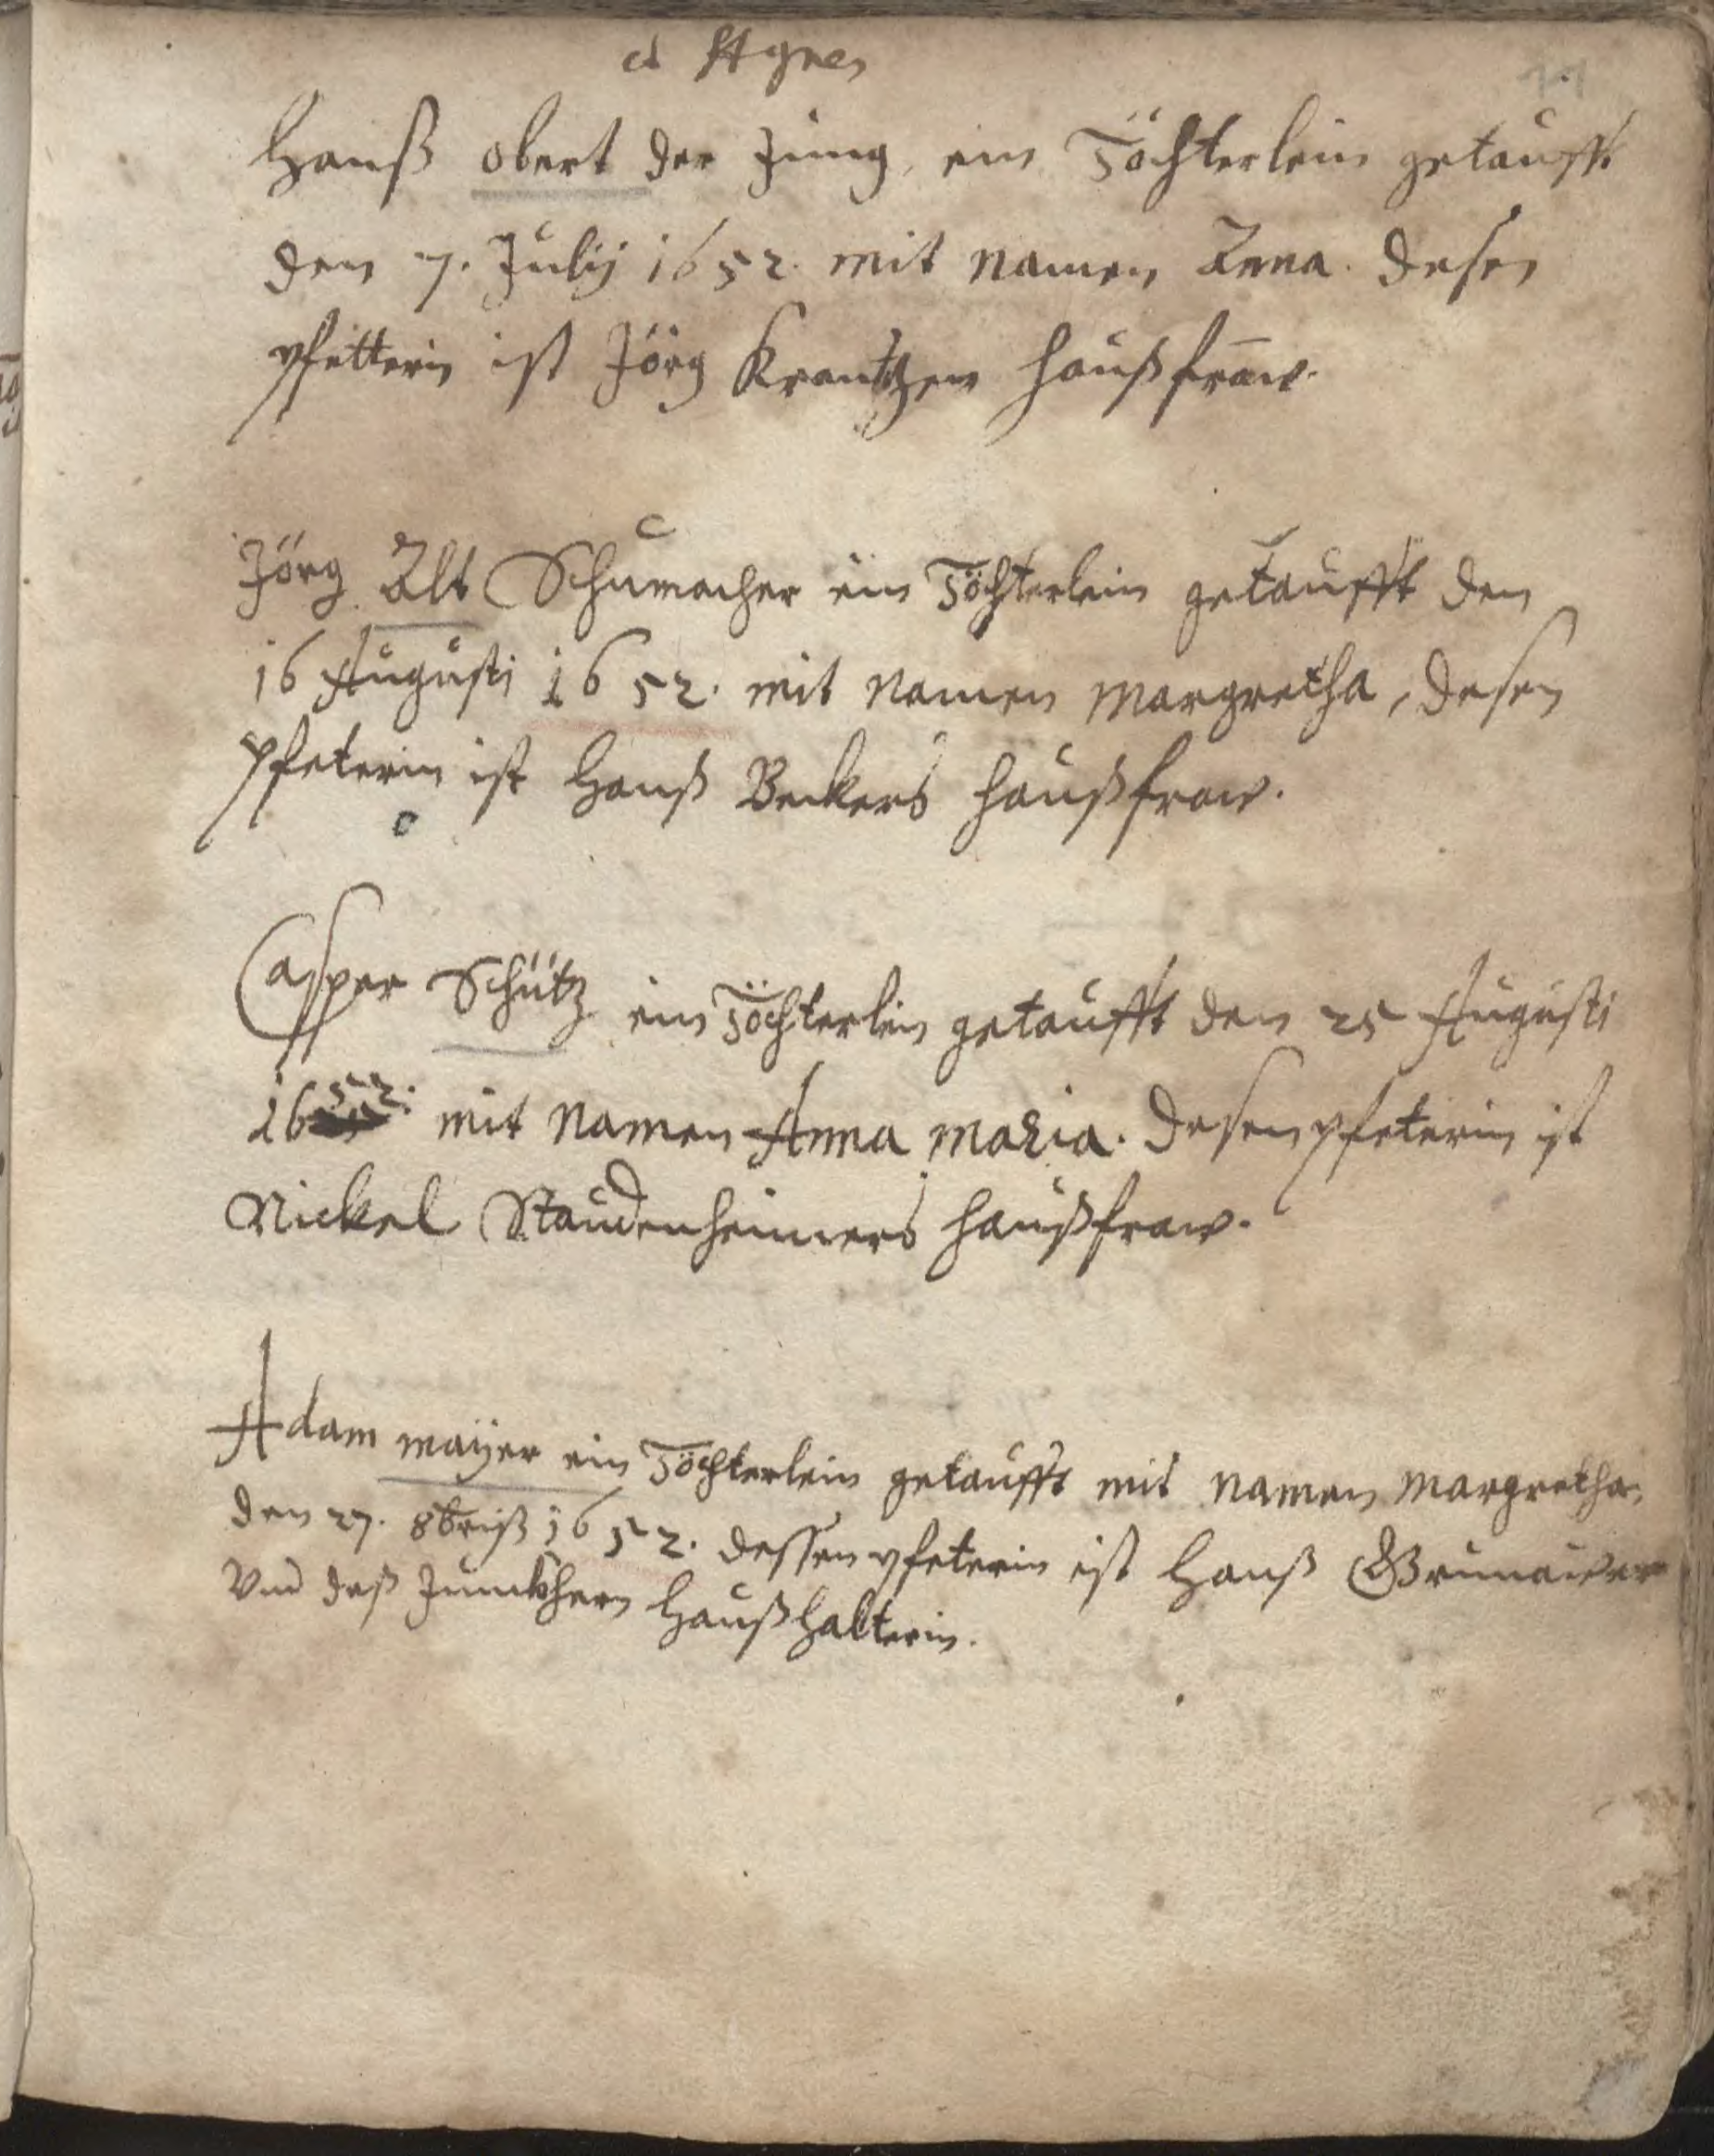 et Agnes
Hanß obert der Jung, ein Töchterlein getaufft
den 7. Julij 1652. mit namen Anna. desen
pfetterin ist Jörg Krantzen haußfraw.
Jörg Alt Schumacher ein Töchterlein getaufft den
16 Augusti 1652. mit namen Margretha, desen
pfeterin ist Hanß Beckers haußfraw.
Casper Schütz ein Töchterlein getaufft den 25 Augusti
1652. mit namen Anna maria. desen pfeterin ist
Nickel Staudenheimers haußfraw.
Adam mayer ein Töchterlein getaufft mit namen Margretha,
den 27. 8briß 1652. dessen pfeterin ist Hanß Grunawer
Vnd deß Junckhern Haußhalterin.